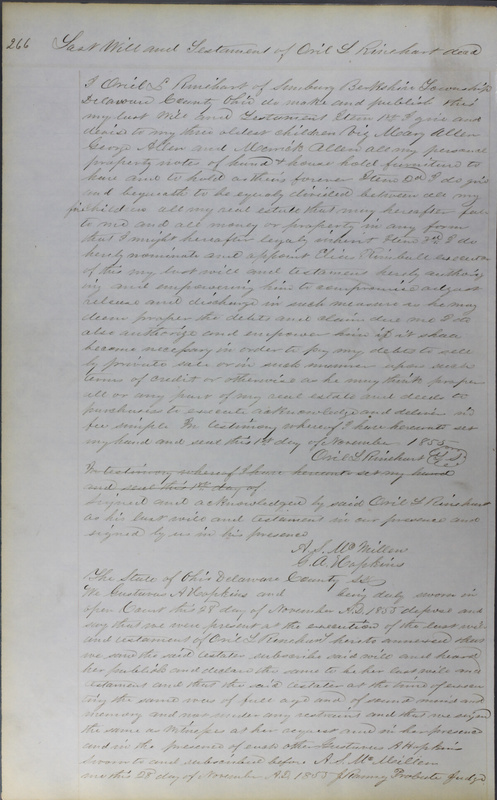 266
Last Will and Testament of Oril S Rinehart decd
I Oril S Rinehart of Sunbury Berkshire Township
Delaware County Ohio do make and publish this
my last Will and Testament Item 1st I give and
devise to my three oldest children Viz Mary Allen
George Allen and Merrick Allen all my personal
property notes of hand & house hold furniture to
have and to hold as theirs forever Item 2d I do give
and bequeath to be equaly divided between all my
five children all my real estate that may hereafter fall
to me and all money or property in any form
that I might hereafter legaly inherit Item 3d I do
hereby nominate and appoint executor
of this my last will and testament hereby authoriz
ing and empowering him to compromise adjust
release and discharge in such measure as he may
deem proper the debts and claims due me I do
also authorize and empower him if it shall
become necessary in order to pay my debts to sell
by private sale or in such manner upon such
terms of credit or otherwise as he may think proper
all or any part of my real estate and deeds to
purchasers to execute acknowledge and deliver in
fee simple In testimony whereof I have hereunto set
my hand and seal this 1st day of November 1855
Oril S Rinehart
In testimony whereof I have hereunto set my hand
and seal this 1st day of
Signed and acknowledged by said Oril S Rinehart
as his last will and testament in our presence and
signed by us in his presence
A. S. McMillen
G. A. Hopkins
The State of Ohio Delaware County SS
We Gustavus A Hopkins and being duly sworn in
open Court this 28 day of November A.D. 1855 depose and
say that we were present at the execution of the last will
and testament of Oril S Rinehart hereto annexed that
we saw the said testator subscribe said will and heard
her publish and declare the same to be her last will and
testament and that the said testator at the time of execu
ting the same was of full age and of sound mind and
memory and not under any restraint and that we signed
the same as witnesses at her request and in her presence
and in the presence of each other Gustavus A Hopkins
Sworn to and subscribed before A. S. McMillen
me this 28 day of November A.D. 1855 Probate Judge